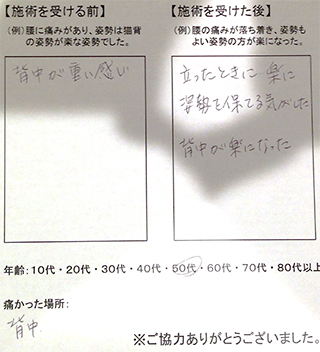 【施術を受ける前】
(例)腰に痛みがあり、姿勢は猫背
の姿勢が楽な姿勢でした。
背中が重い感い
【施術を受けた後】
(例)腰の痛みが落ち着き、姿勢も
よい姿勢の方が楽になった。
立ったときに 楽に
姿勢を保てる気がした
背中が楽になった
年齢:10代・20代・30代・40代・50代・60代・70代・80代以上
痛かった場所:
背中
※ご協力ありがとうございました。